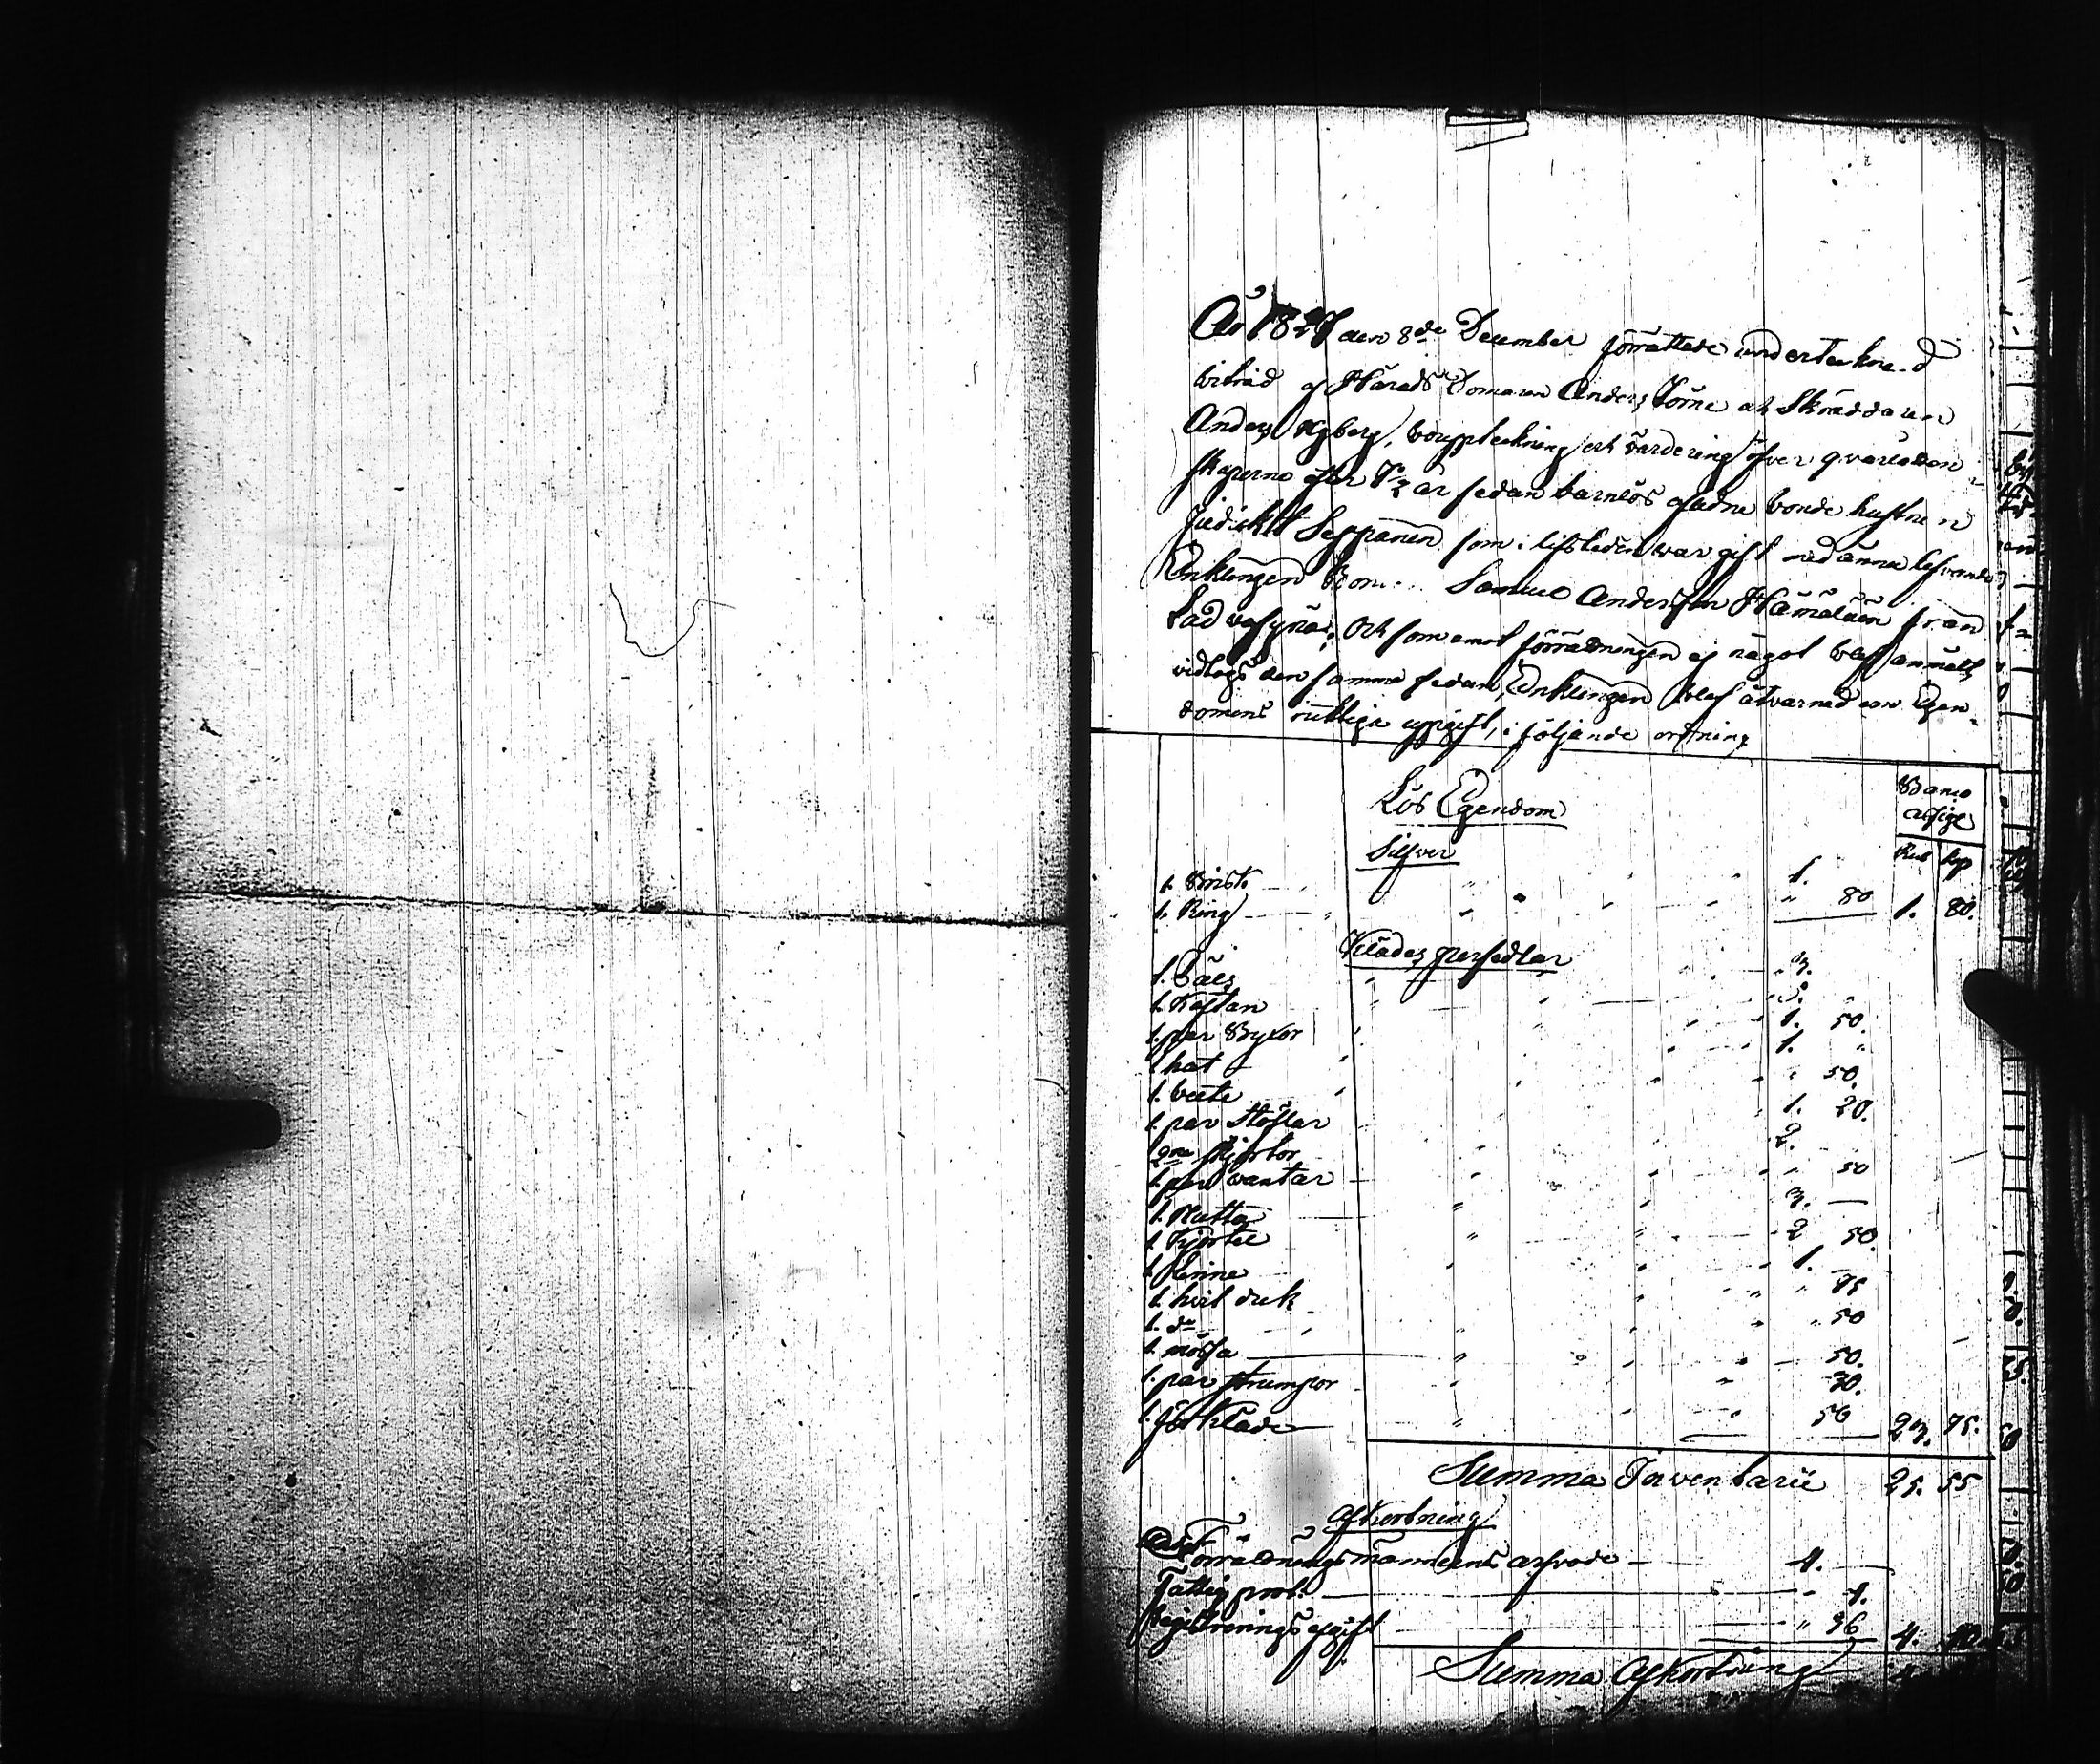 År 1827 den 8de December förrättade undertecknad
biträd af Härads Domaren Anders Törne ock Skräddaren
Anders Nyberg, bouppteckning ock värdering öfver qvarlåten
skaperne efter 1½ år sedan barnlös afledne bonde hustrun
Seppänen som i lifstiden war gift med ännu lefvande
Enklingen Samuel Andersson Hämäläin från
Ladvosynäs, Och som emot förrättningen ej något waf anmält,
vidtogs den samma sedan Enklingen blef åtvarnad om Egen
domens ricktiga uppgift, i följande ordning
Lös Egendom
Banco
assign
Rub kop
Silfver
1. Brisk " " 1.
1. Ring " " 80 1. 80.
Klädes persedlar
1. Päls 3.
1. Kaftan 5.
1. par Byxor 1. 50.
1 hat 1. "
1. bälte " 50.
1. par Stöflar 1. 20.
2ne skjortor 2.
1. par vantar " 50
1. Mutta 3. —
1. Kjortel 2 50.
1. 1. —
1. hvit duk " 75
1. do " 50
1. mössa 50.
1. par strumpor 30.
1. förkläde 50 23. 75.
Summa Inventarii 25. 55
Afkortning
Förrättningsmannens arfvode — 4. —
Fattig proc. — " 4.
Registrerings afgift — " 36 4. 40
Summa Afkortning